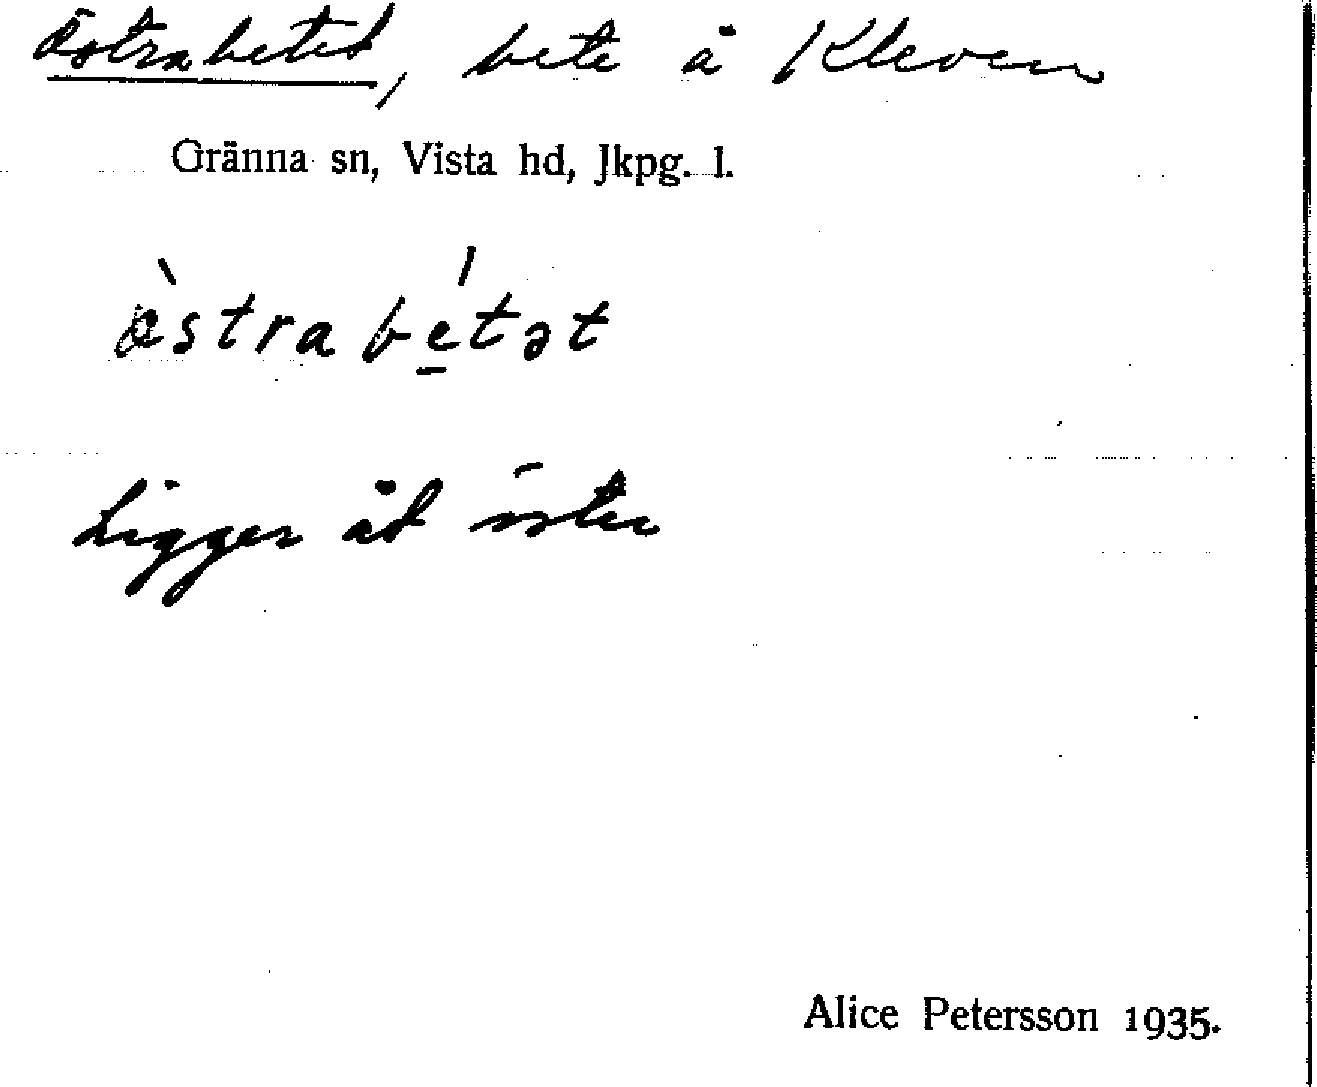 Östrabetet, bete å Kleven
Gränna sn, Vista hd, Jkpg. l.
östrabetət
Ligger åt öster
Alice Petersson 1935.